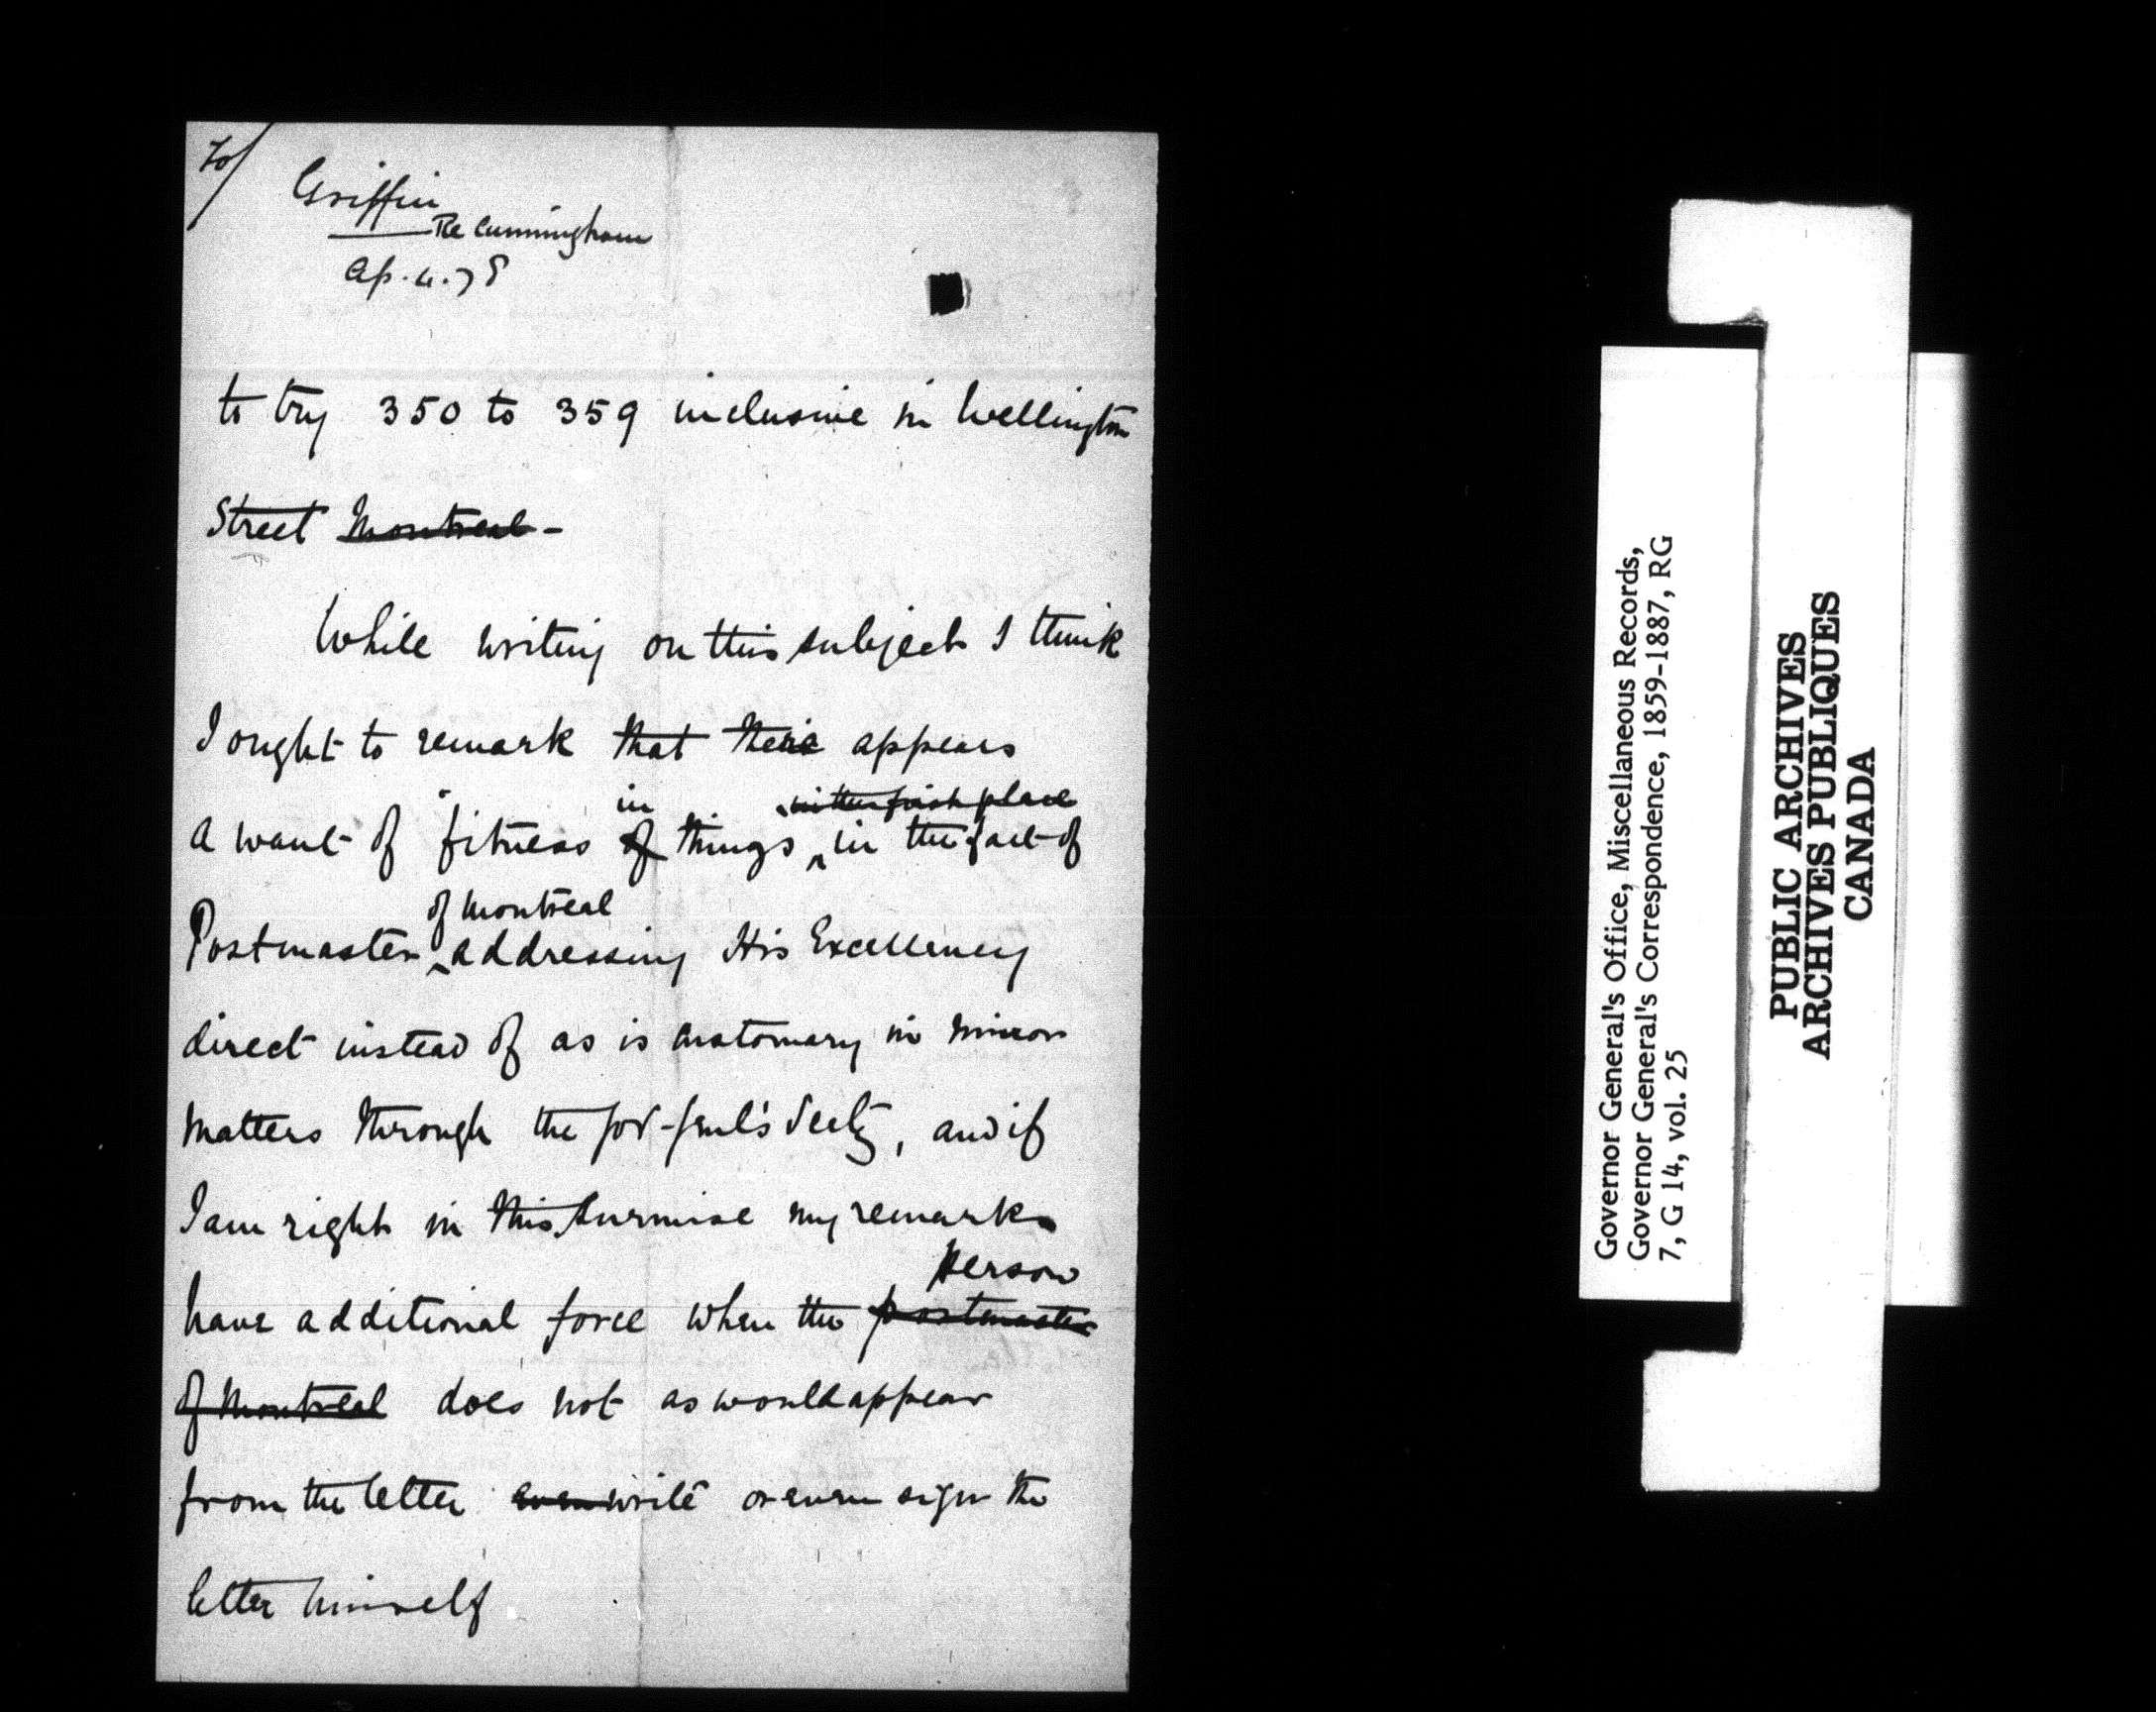 To/
Griffin
Re Cunningham
Ap. 4. 78
to try 350 to 359 inclusive in Wellington
Street Montreal -
While writing on this subject I think
I ought to remark that there appears
in in the first place
a want of fitness of things in the fact of
of Montreal
Postmaster addressing His Excellency
direct instead of as is customary in minor
matters through the Gov-Genl's Secty, and if
I am right in this surmise my remarks
Person
have additional force when the postmaster
of Montreal does not as would appear
from the letter even write or even sign the
letter himself
Governor General's Office, Miscellaneous Records,
Governor General's Correspondence, 1859-1887, RG
7, G 14, vol. 25
PUBLIC ARCHIVES
ARCHIVES PUBLIQUES
CANADA